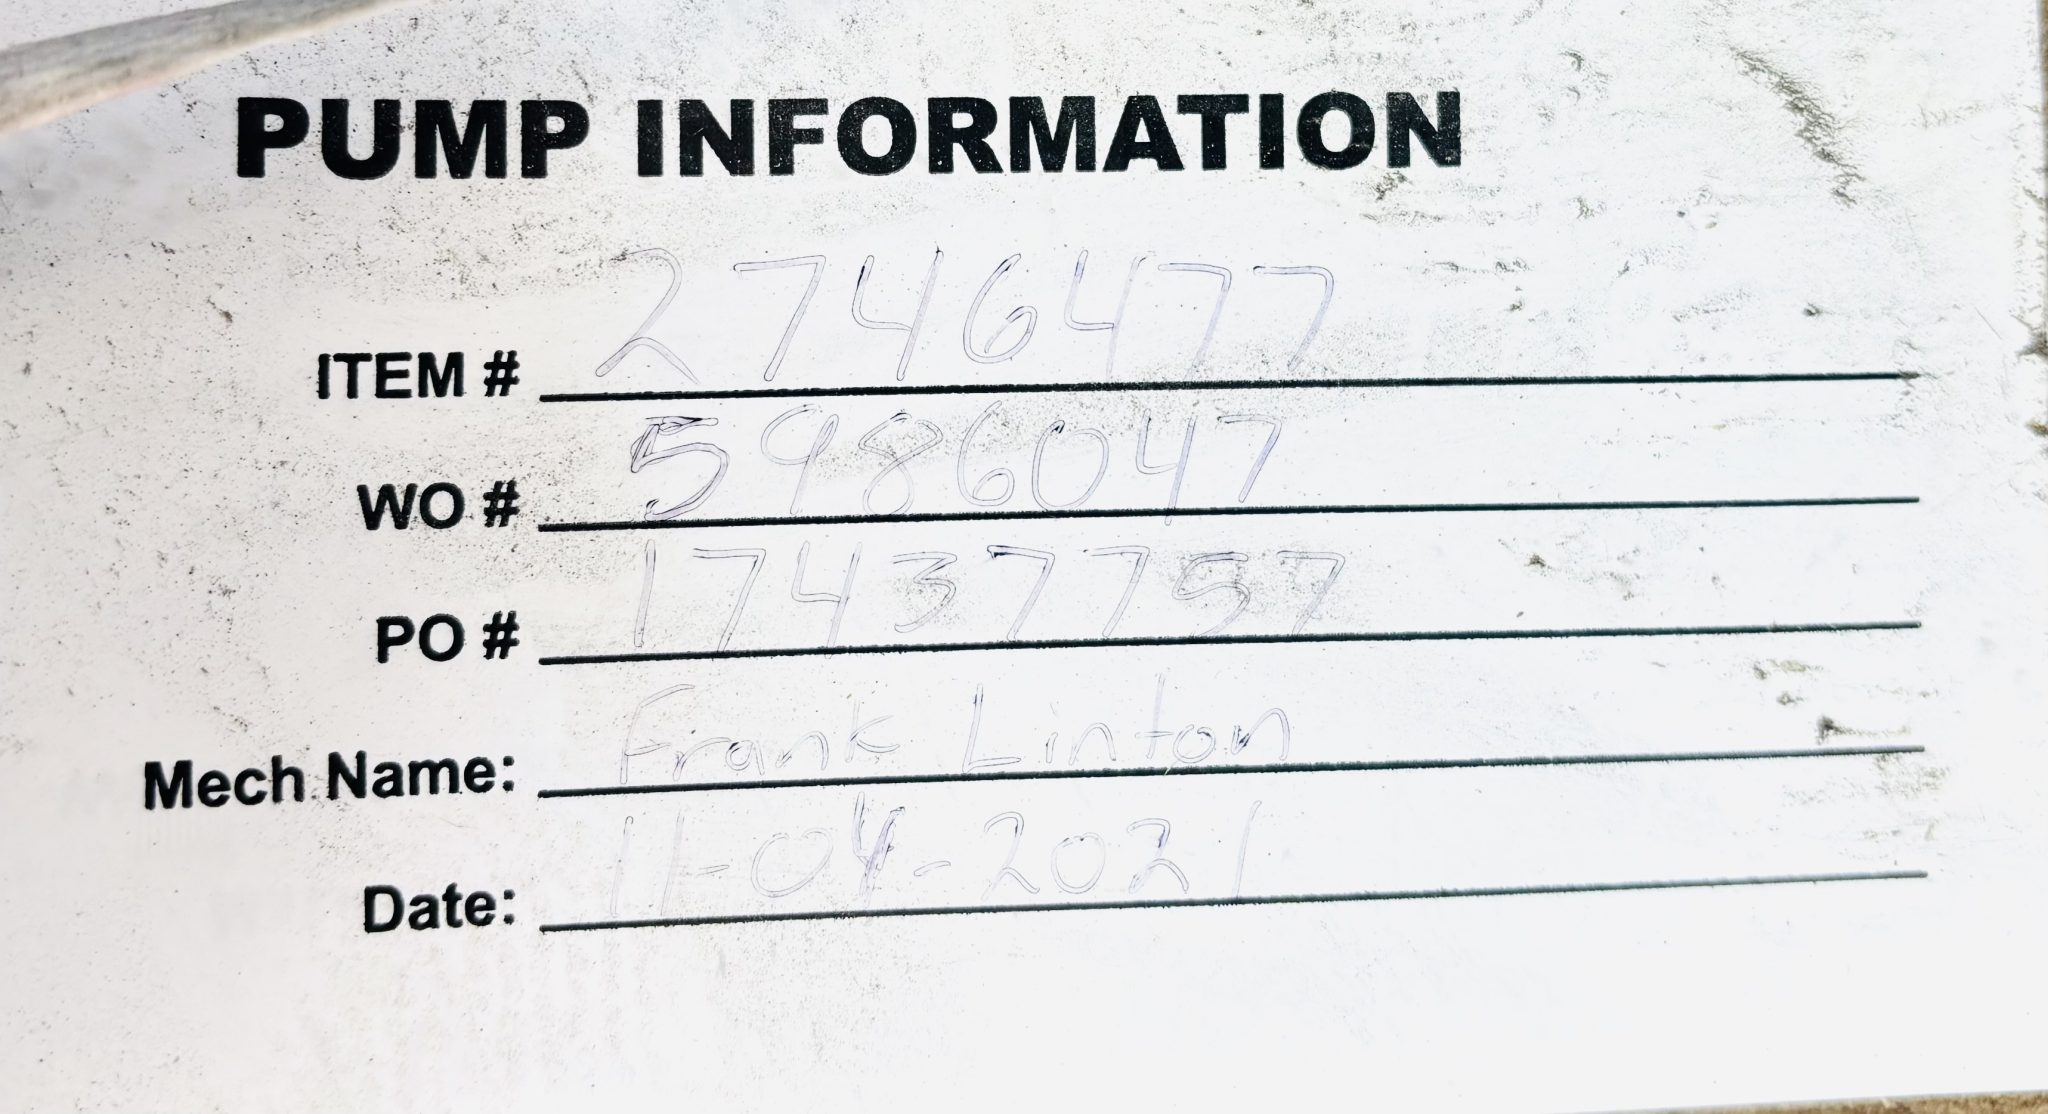 PUMP INFORMATION
ITEM # 2746477
WO # 5986047
PO # 17437757
Mech Name: Frank Linton
Date: 11-04-2021